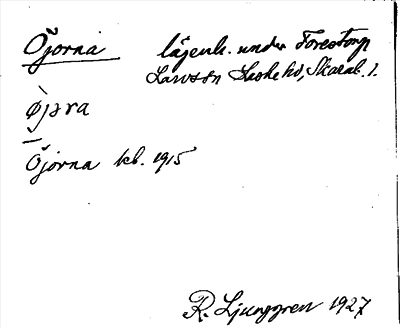 Öjorna lägenh. under Forestorp
Larvs sn Laske hd, Skarab. l.
øjɔra
Öjorna kb. 1915
R. Ljunggren 1927